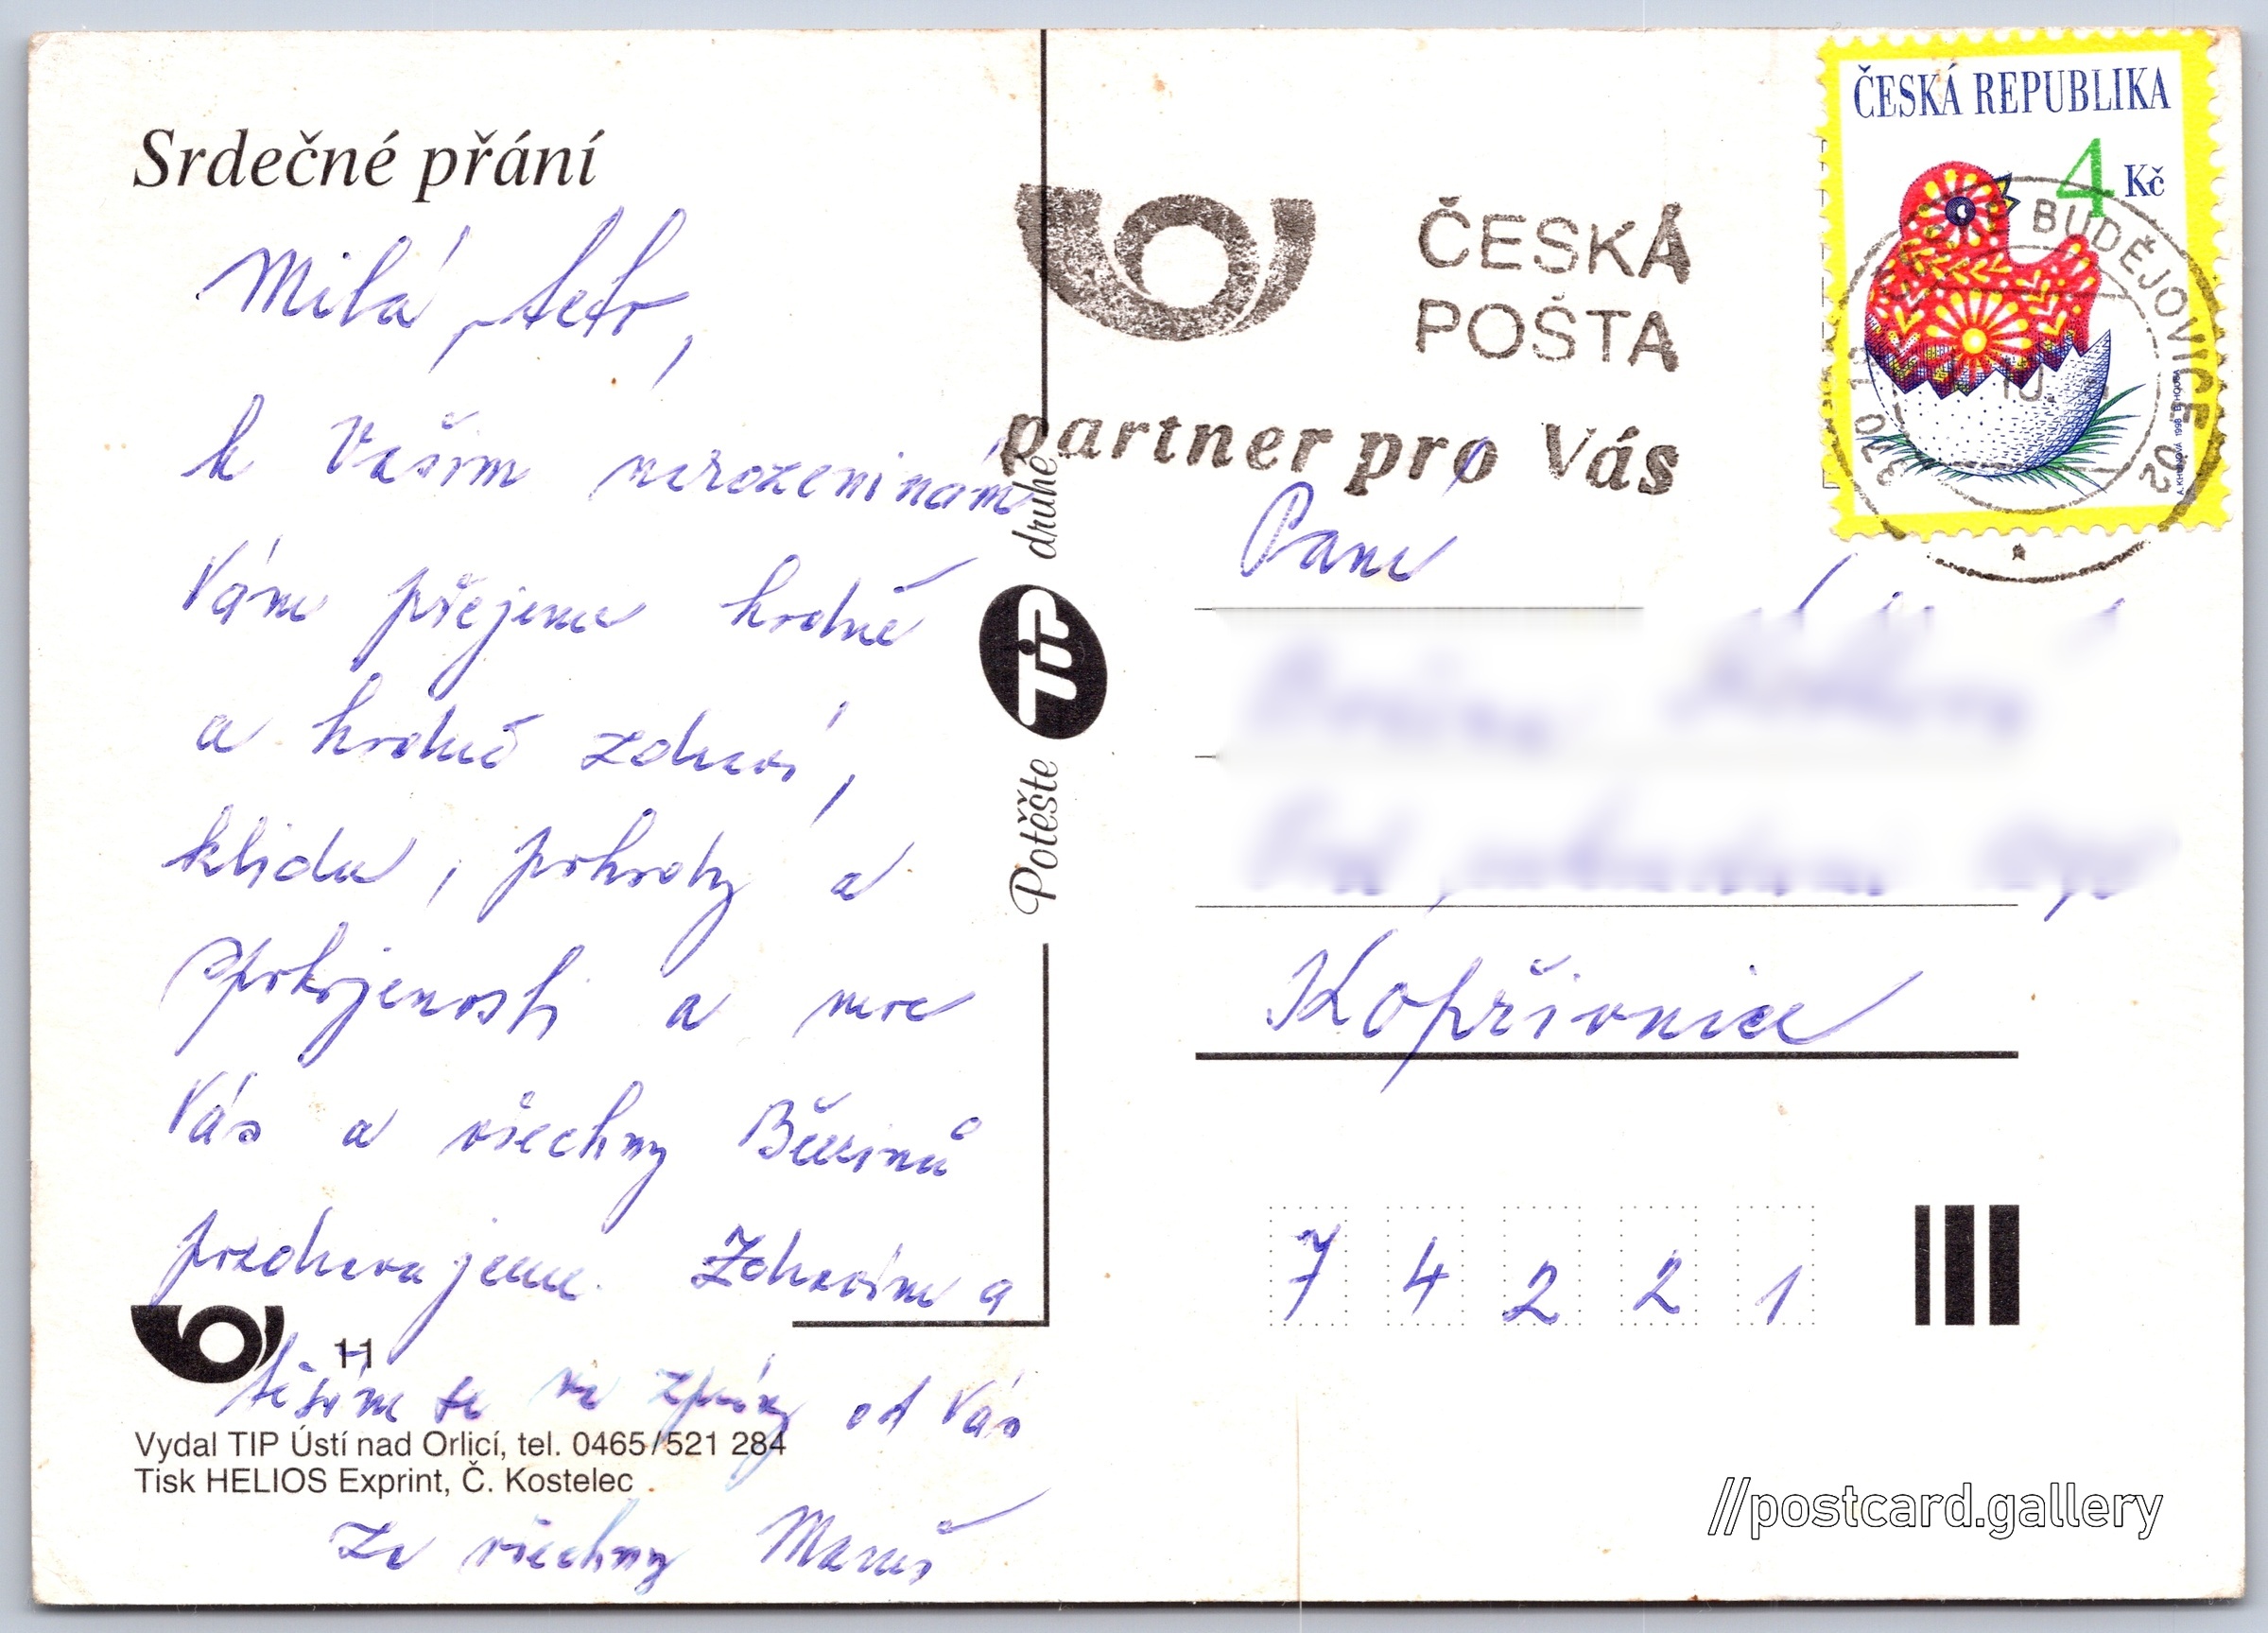 Srdečné přání
Milá teto,
k Vašim narozeninám
Vám přejeme hodně
a hodně zdraví,
klidu, pohody a
spokojenosti a moc
Vás a všechny
pozdravujeme. Zdravím a
těším se na zprávy od Vás
Za všechny
11
Vydal TIP Ústí nad Orlicí, tel. 0465/521 284
Tisk HELIOS Exprint, Č. Kostelec
Potěšte TIP druhé
ČESKÁ
POŠTA
partner pro Vás
ČESKÁ REPUBLIKA
4 Kč
BUDĚJOVICE 02
370
Paní
Kopřivnice
7 4 2 2 1
//postcard.gallery